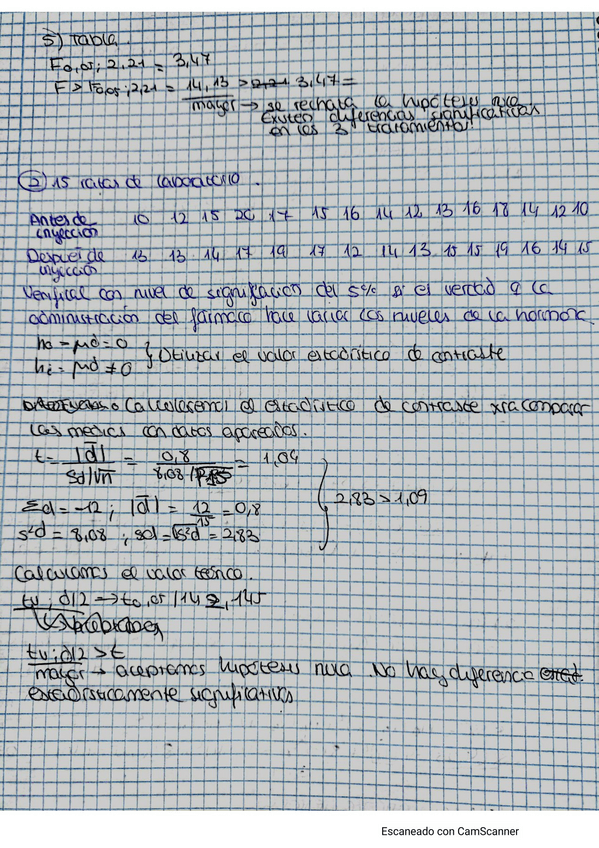 5) Tabla.
F0,05; 2,21 = 3,47
F > F0,05; 2,21 = 14,13 > 3,47 =
mayor → se rechaza la hipótesis nula
Existen diferencias significativas
en los 3 tratamientos
2) 15 ratas de laboratorio.
Antes de inyección 10 12 15 20 17 15 16 14 12 13 16 18 14 12 10
Después de inyección 13 13 14 17 19 17 12 14 13 15 15 19 16 14 15
Verificar con nivel de significación del 5% si es verdad q la
administración del fármaco hace variar los niveles de la hormona
h0 = μd = 0
hi = μd ≠ 0 } Utilizar el valor estadístico de contraste
Calcularemos el estadístico de contraste xra comparar
las medias con datos apareados.
t = |d̄| / Sd/√n = 0,8 / 8,08/√15 = 1,09
Σd = -12 ; |d̄| = 12/15 = 0,8 } 2,83 > 1,09
s²d = 8,08 ; sd = √s²d = 2,83
Calculamos el valor teórico.
tv; d/2 → t0,05/14 2,145
tv; d/2 > t
mayor → aceptamos hipótesis nula. No hay diferencia
estadísticamente significativas
Escaneado con CamScanner